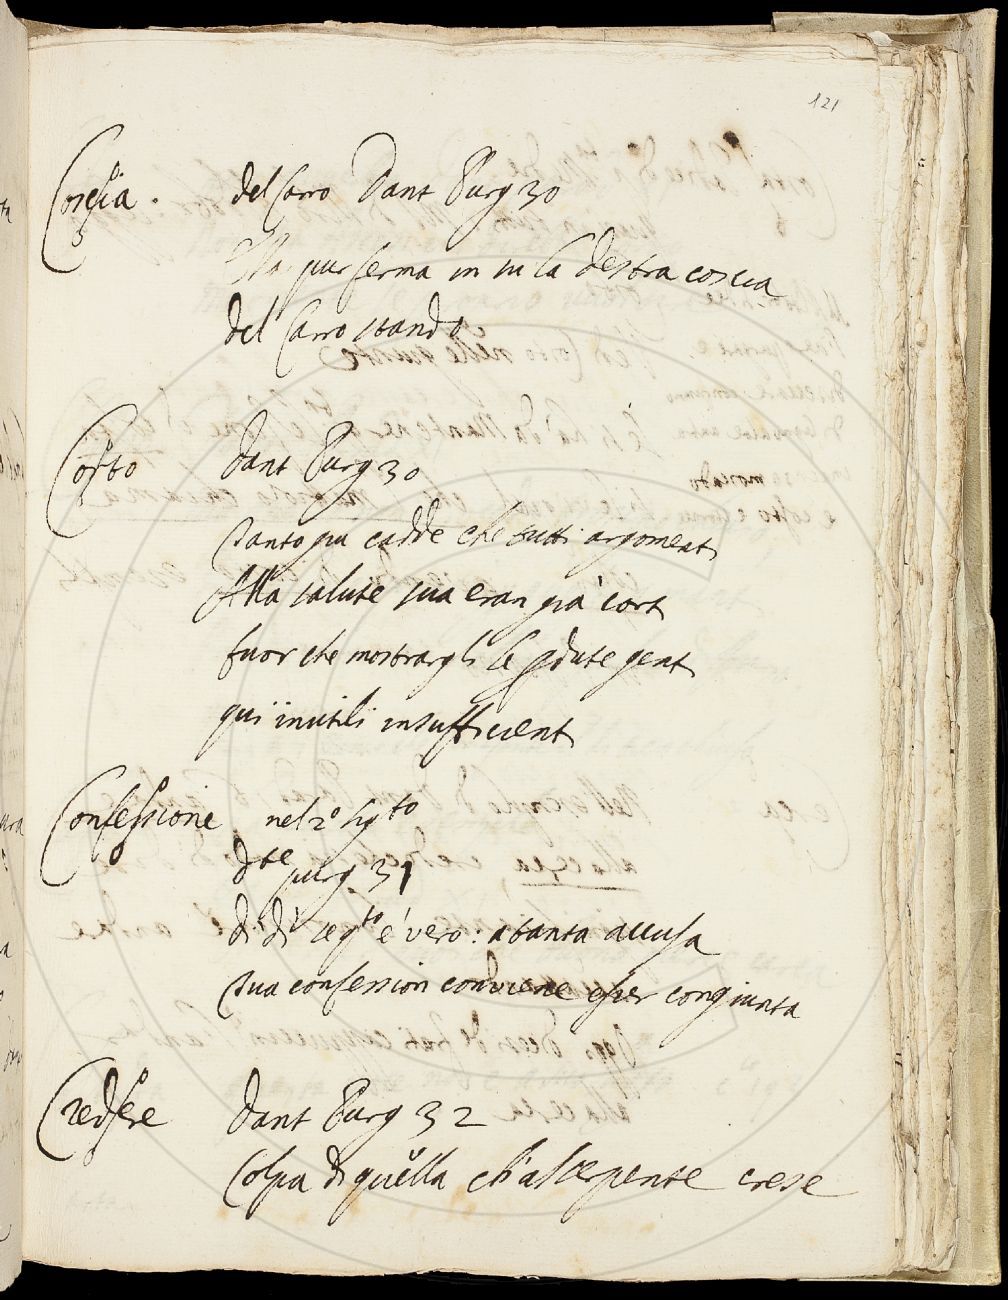 121
Coscia. del Carro Dant Purg 30
Ella pur ferma in su la destra coscia
del Carro stando
Corto Dant Purg 30
Tanto giu cadde che tutti argoment
Alla salute sua eran già cort
fuor che mostrargli le pdute gent
qui inutili insufficient
Confessione nel 2º sig.to
Dte purg 31
di' di' se qto é vero: a tanta accusa
tua confession conviene esser congiunta
Credere Dant Purg 32
Colpa di quella ch'al serpente crese